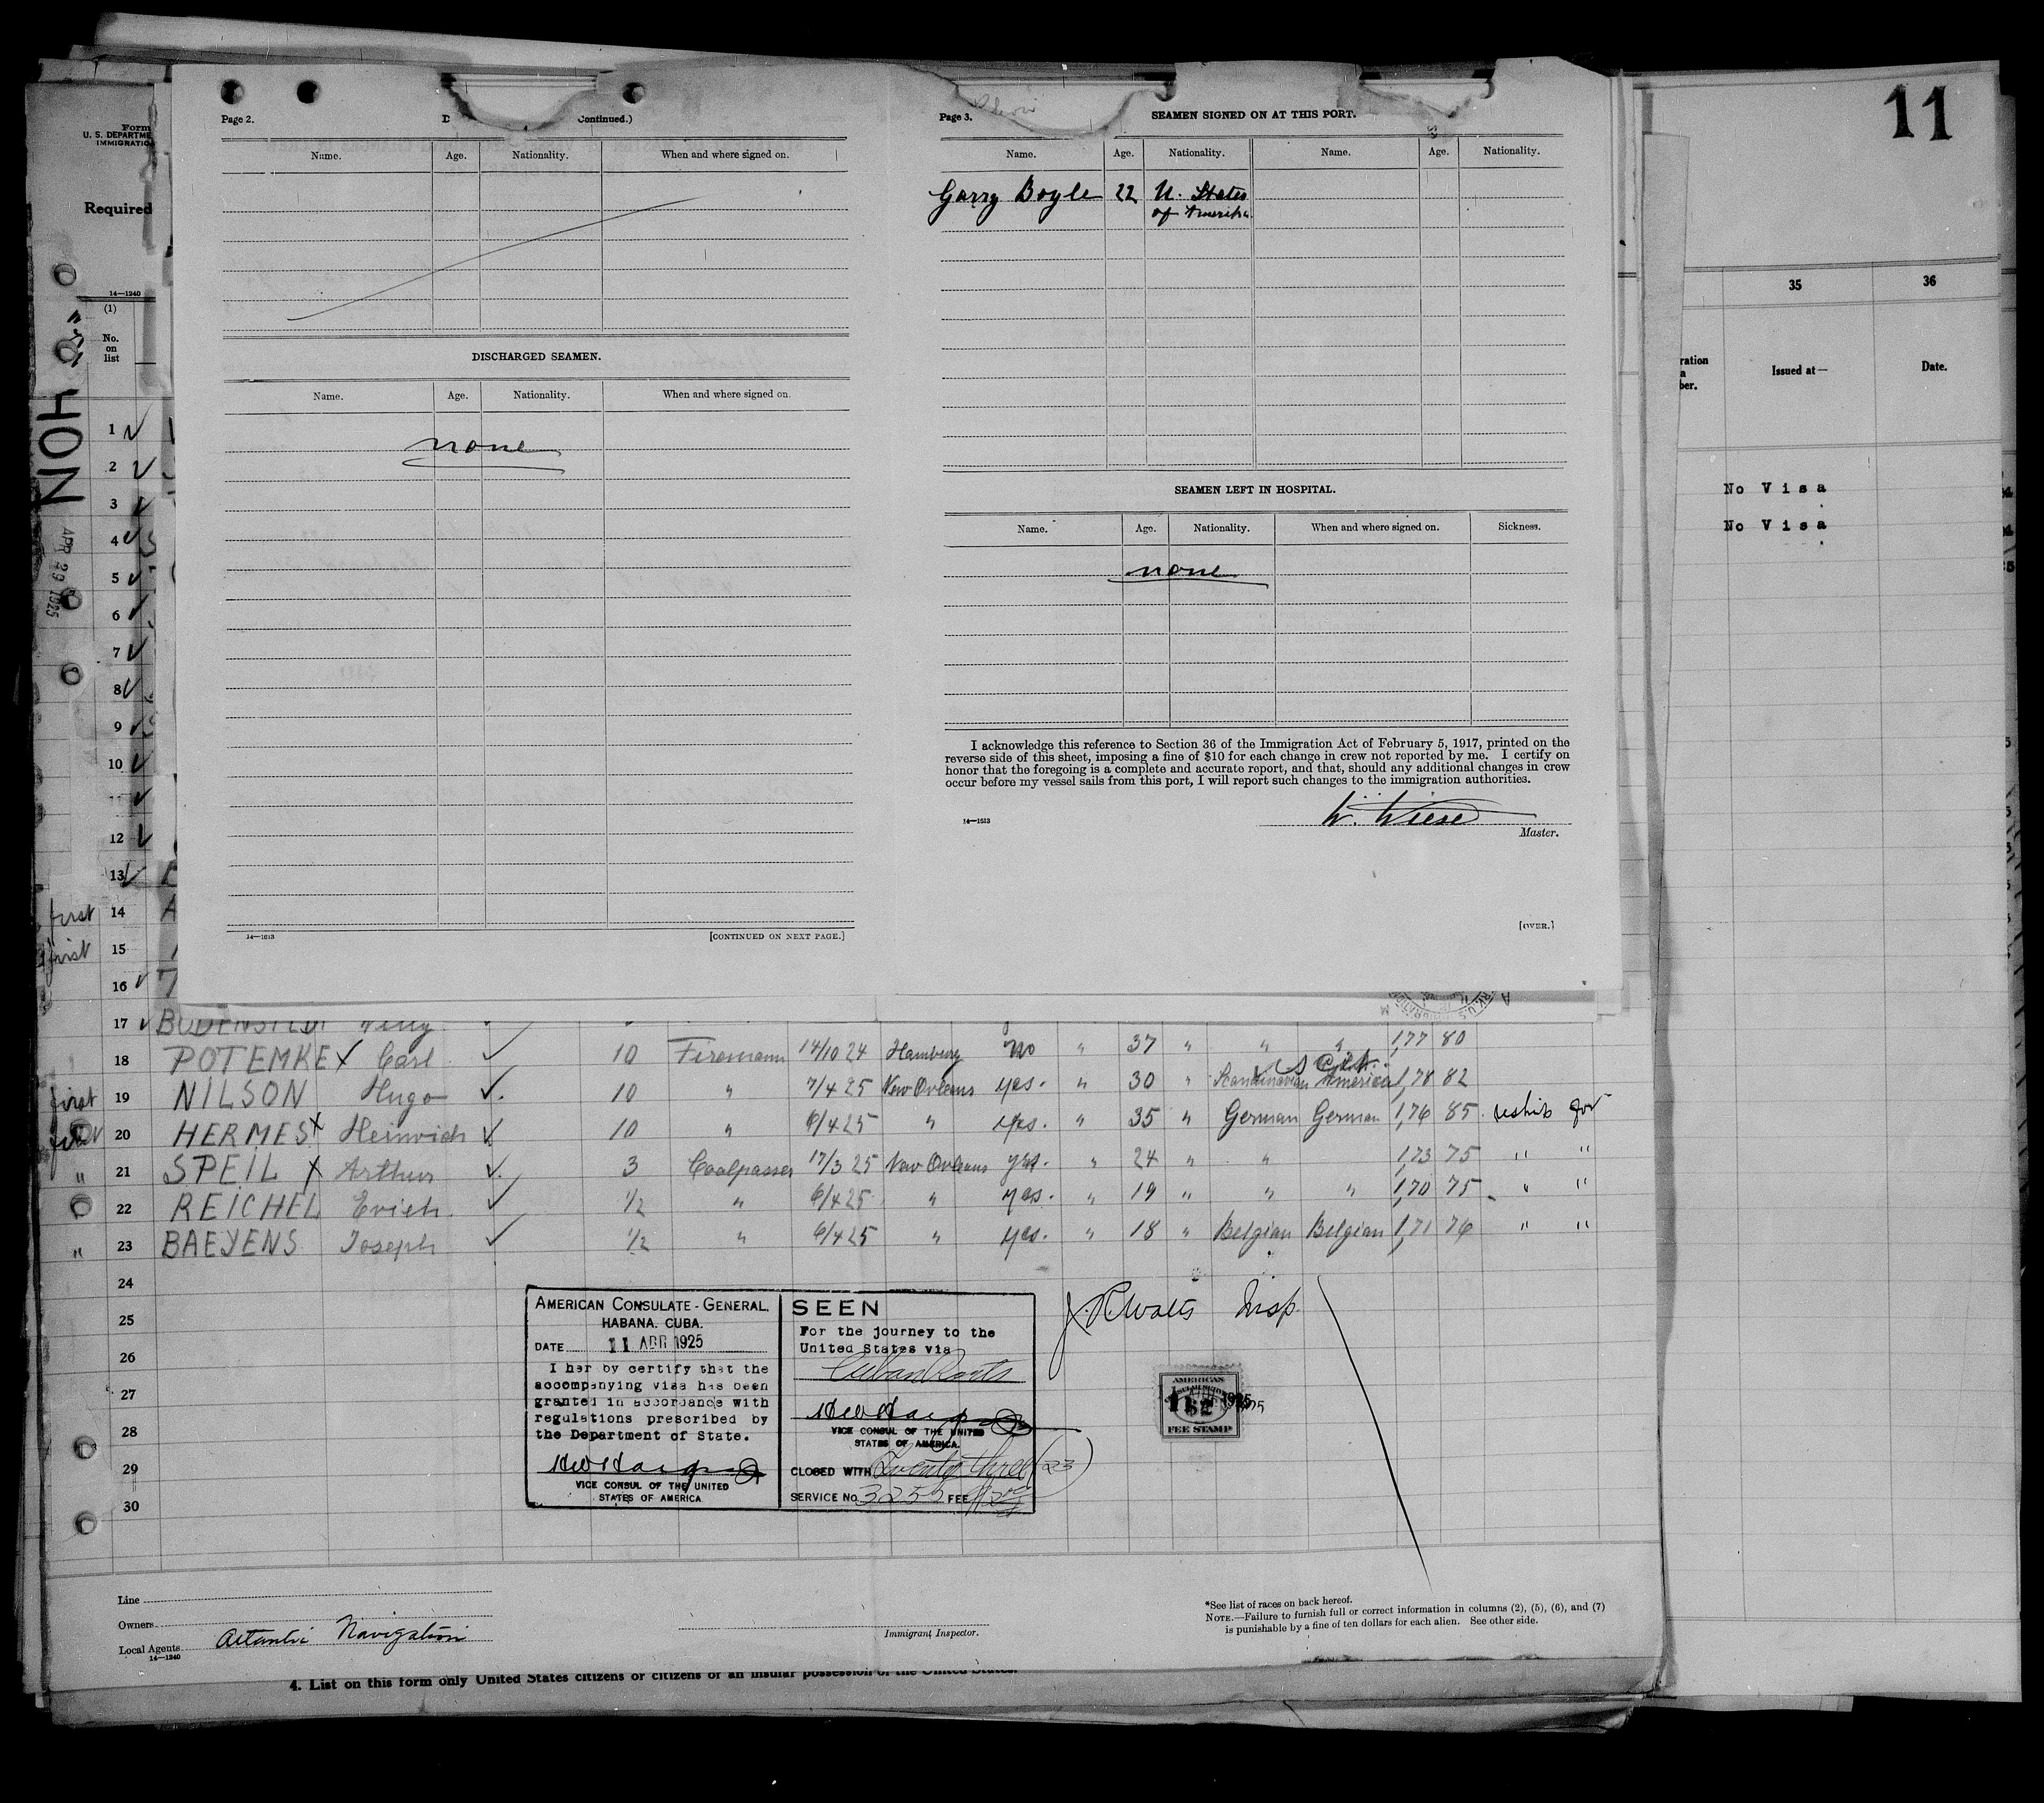 11
Form
U. S. DEPARTME
IMMIGRATIO
Required
14—1240
(1)
No.
on
list
NOH
APR 29 1925
Page 2.
Continued.)
Name. Age. Nationality. When and where signed on.
DISCHARGED SEAMEN.
Name. Age. Nationality. When and where signed on.
none
14—1613
[CONTINUED ON NEXT PAGE.]
Page 3.
SEAMEN SIGNED ON AT THIS PORT.
Name. Age. Nationality. Name. Age. Nationality.
Garry Boyle 22 U. States
of Amerika
SEAMEN LEFT IN HOSPITAL.
Name. Age. Nationality. When and where signed on. Sickness.
none
I acknowledge this reference to Section 36 of the Immigration Act of February 5, 1917, printed on the
reverse side of this sheet, imposing a fine of $10 for each change in crew not reported by me. I certify on
honor that the foregoing is a complete and accurate report, and that, should any additional changes in crew
occur before my vessel sails from this port, I will report such changes to the immigration authorities.
W. Wiese
14—1613
Master.
[OVER.]
35 36
ration
a
ber.
Issued at—
Date.
No Visa
No Visa
1
2
3
4
5
6
7
8
9
10
11
12
13
first 14
first 15
16
17 BODENSTEDT Willy
18 POTEMKE x Carl 10 Firemann 14/10 24 Hamburg no " 37 " " " 1,77 80
first 19 NILSON Hugo 10 " 7/4 25 New Orleans yes. " 30 " Scandinavian America 1,78 82
20 HERMES x Heinrich 10 " 6/4 25 " yes. " 35 " German German 1,76 85 reship for
" 21 SPEIL x Arthur 3 Coalpasser 17/3 25 New Orleans yes. " 24 " " 1,73 75 " "
22 REICHEL Erich 1/2 " 6/4 25 " yes. " 19 " " " 1,70 75 " "
" 23 BAEYENS Joseph 1/2 " 6/4 25 " yes. " 18 " Belgian Belgian 1,71 76 " "
24
25
26
27
28
29
30
AMERICAN CONSULATE-GENERAL.
HABANA. CUBA.
DATE 11 APR 1925
I her by certify that the
accompanying visa has been
granted in accordance with
regulations prescribed by
the Department of State.
VICE CONSUL OF THE UNITED
STATES OF AMERICA
SEEN
For the journey to the
United States via
Cuban Ports
VICE CONSUL OF THE UNITED
STATES OF AMERICA.
CLOSED WITH Twenty three (23)
SERVICE No 3255 FEE
J. R. Walts Insp.
AMERICAN
FEE STAMP
Line
Owners
Local Agents Atlantic Navigation
14—1240
Immigrant Inspector.
*See list of races on back hereof.
NOTE.—Failure to furnish full or correct information in columns (2), (5), (6), and (7)
is punishable by a fine of ten dollars for each alien. See other side.
4. List on this form only United States citizens or citizens of an insular possession of the United States.